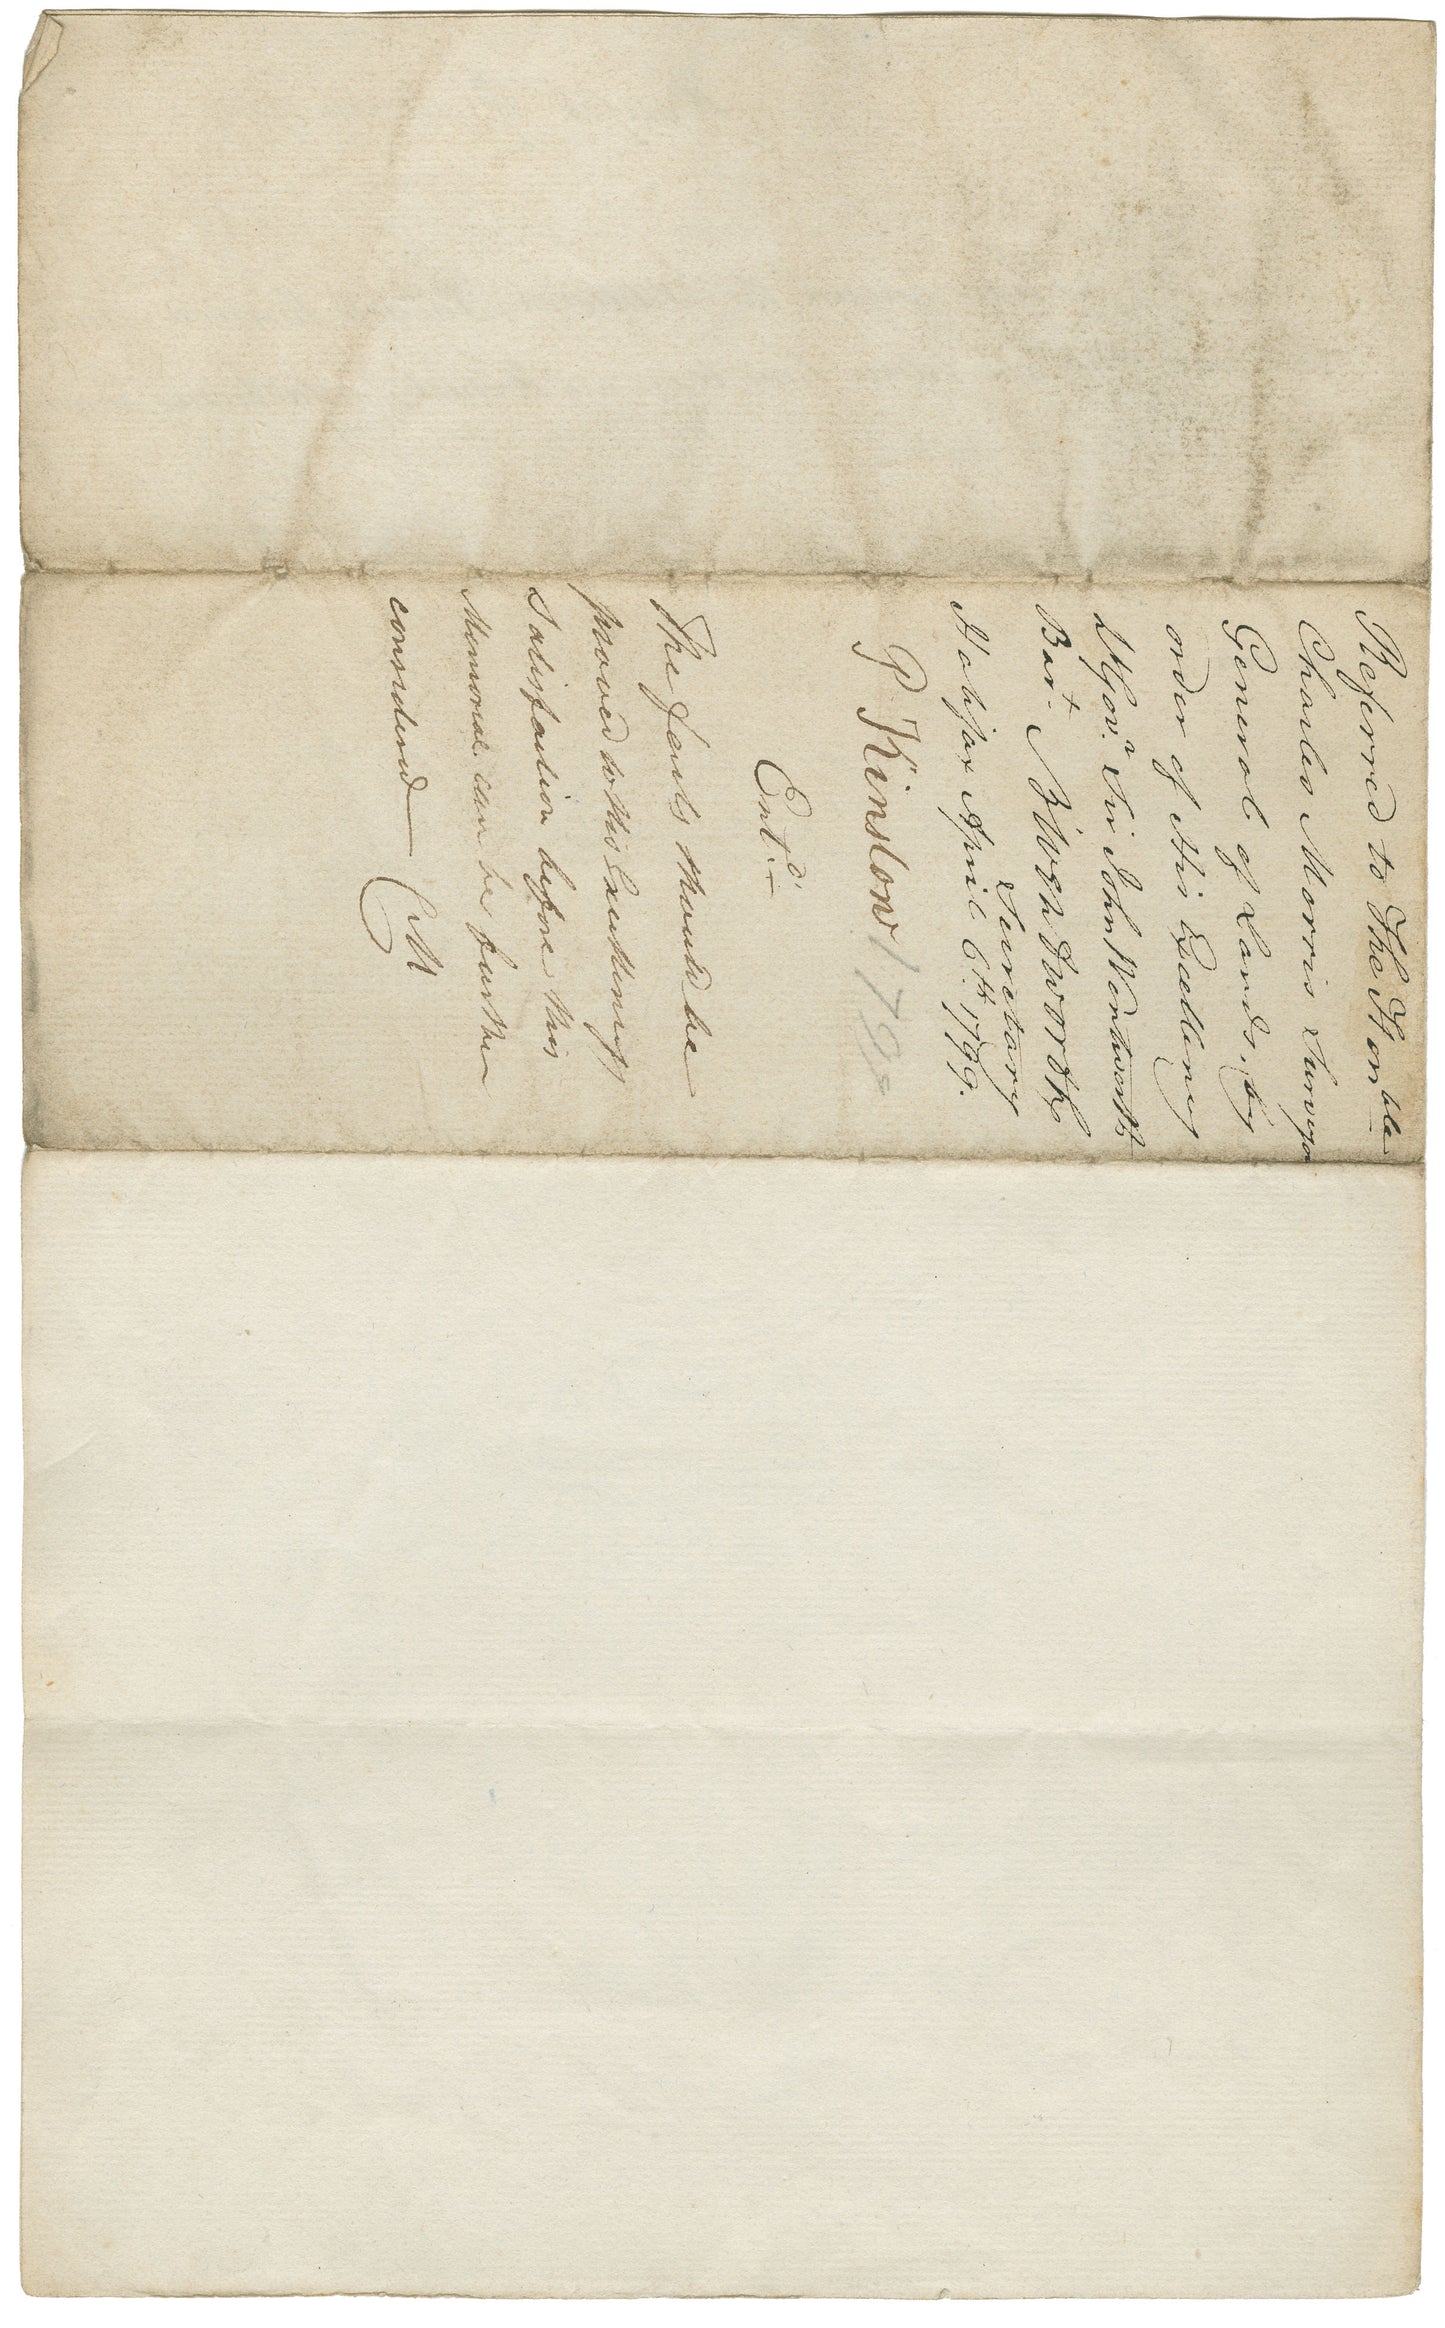 Referred to The Honble
Charles Morris Surveyor
General of Lands, by
order of His Excellency
Lt. Govr. Sir John Wentworth
Bart. B: Wentworth
Secretary
Halifax April 6th. 1799.
P. Kinslow 1799
Entd.
The facts should be
prooved to His Excellency's
Satisfaction before this
Memorial can be further
considered CM